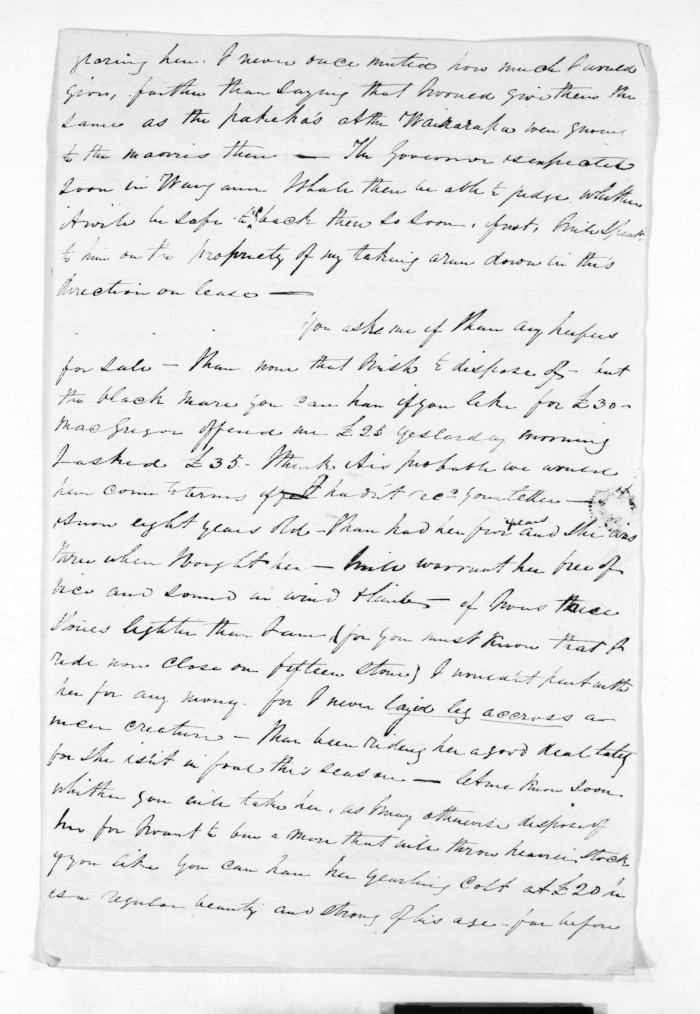 grazing here. I never once hinted how much I would
give, further than saying that I would give them the
same as the pakeha's at the Wairarapa were giving
to the maoris then — The Governor is expected
soon in Wanganui I shall then be able to judge whether
it will be safe to go back there so soon, if not, I will speak
to him on the propriety of my taking a run down in this
direction on lease —
You ask me if I have any heifers
for sale — I have none that I wish to dispose of — but
the black mare you can have if you like for £30 -
MacGregor offered me £25 yesterday morning
I asked £35 - I think it is probable we would
have come to terms if I hadn't recd your letter —
is now eight years old - I have had her five years and she was
three when I bought her — I will warrant her free of
vice and sound in wind & limb — if I was three
stones lighter than I am (for you must know that I
ride now close on fifteen stone) I wouldn't part with
her for any money. for I never layed leg accross a
nicer creature — I have been riding her a good deal lately
for she isn't in foal this season — let me know soon
whither you will take her, as I may otherwise dispose of
her for I want to buy a mare that will throw heavier stock
if you like you can have her yearling colt at £20 he
is a regular beauty and strong of his age - far before